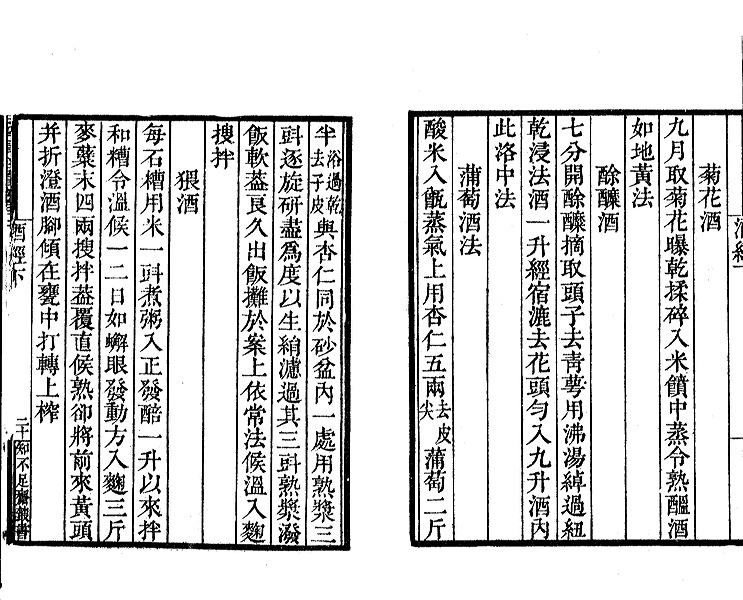 菊花酒
九月取菊花曝乾揉碎入米饙中蒸令熟醞酒
如地黃法
酴醿酒
七分開酴醿摘取頭子去青萼用沸湯綽過紐
乾浸法酒一升經宿漉去花頭勻入九升酒內
此洛中法
蒲萄酒法
酸米入甑蒸氣上用杏仁五兩去皮尖蒲萄二斤
半浴過乾去子皮與杏仁同於砂盆內一處用熟漿三
㪷逐旋研盡爲度以生絹濾過其三㪷熟漿潑
飯軟葢良久出飯攤於案上依常法候溫入麴
搜拌
猥酒
每石糟用米一㪷煮粥入正發醅一升以來拌
和糟令溫候一二日如蠏眼發動方入麴三斤
麥糵末四兩搜拌葢覆直候熟卻將前來黃頭
幷折澄酒腳傾在甕中打轉上榨
酒經下
二十
知不足齋叢書